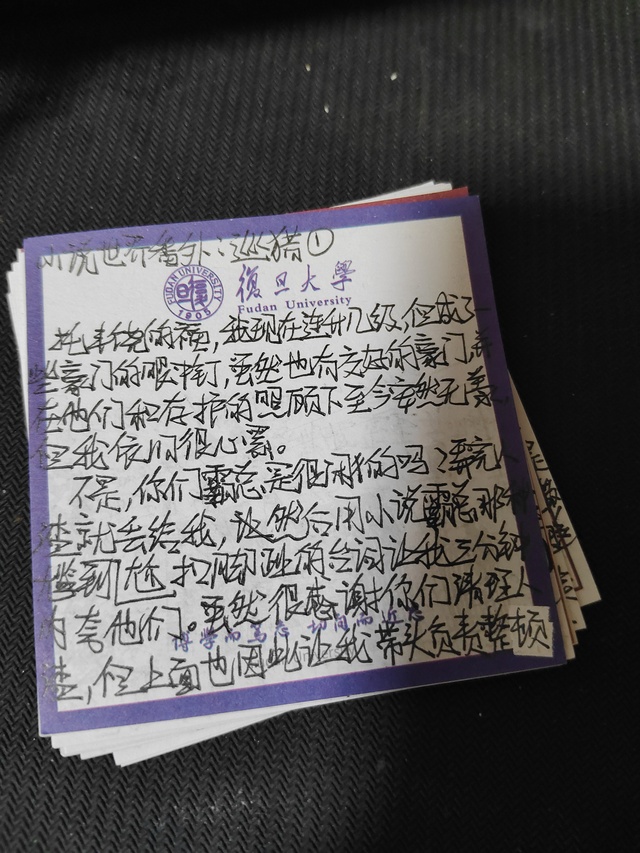 小说世界番外：巡猎①
FUDAN UNIVERSITY
1905
復旦大學
Fudan University
托丰饶的福，我现在连升几级，但成了一
些豪门的眼中钉，虽然也有交好的豪门
在他们和存护的照顾下至今安然无恙，
但我依旧很心累。
不是，你们霸总是很闲的吗？逮完人
渣就丢给我，让然后用小说霸总那种
尴到尬扣脚趾的台词让我三分钟
内套他们。虽然很感谢你们清理人
博学而笃志 切问而近思
渣，但上面也因此让我带头负责整顿